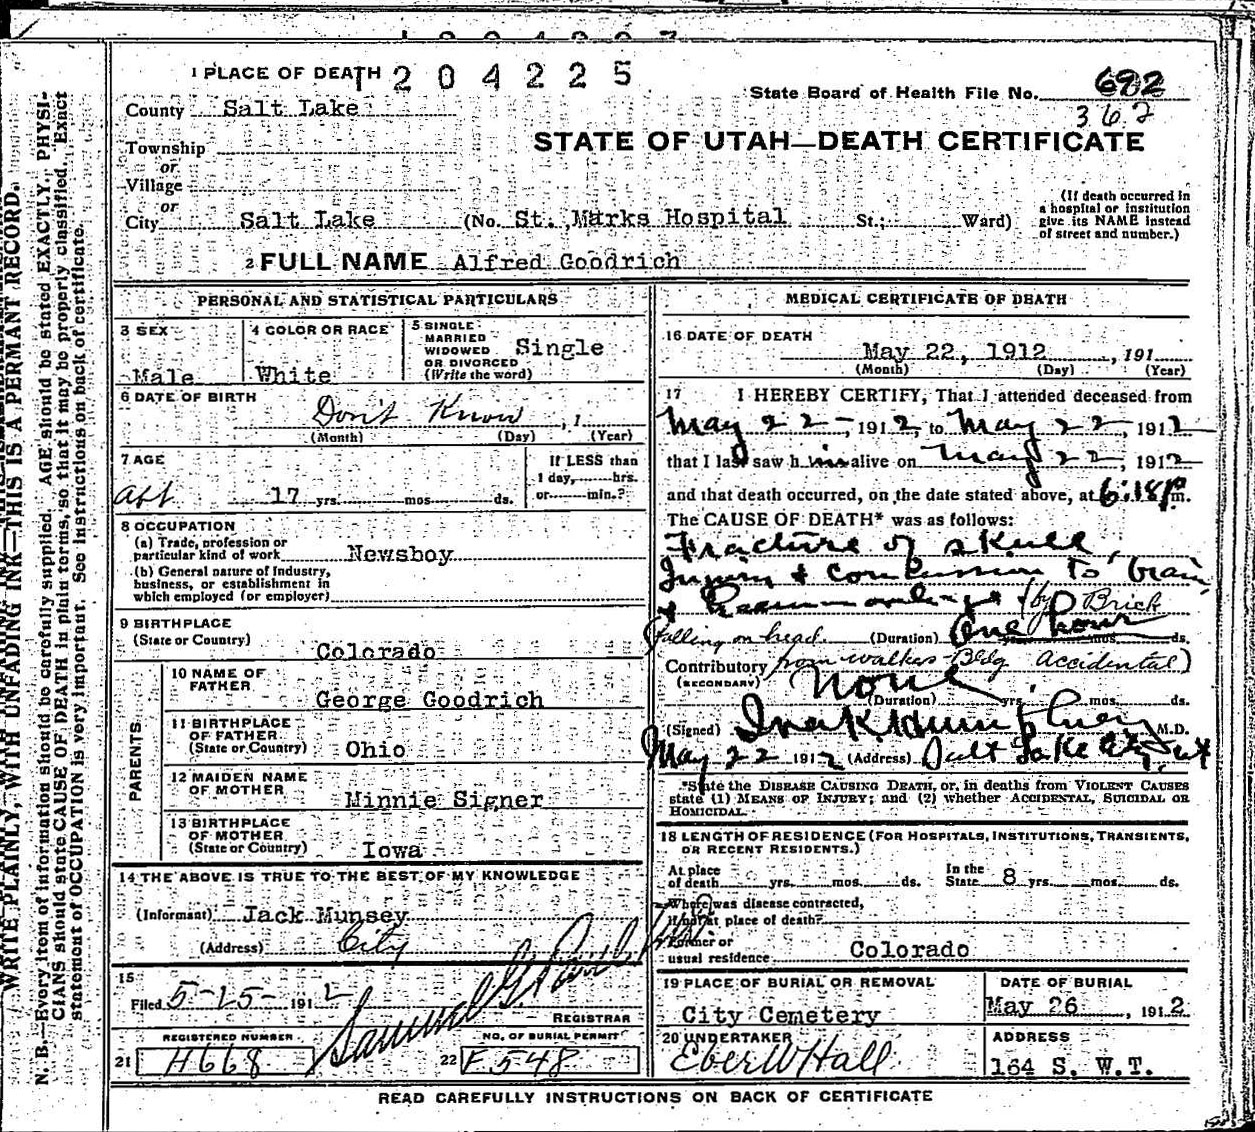 1 PLACE OF DEATH 1204225
State Board of Health File No. 692
362
County Salt Lake
STATE OF UTAH—DEATH CERTIFICATE
Township
or
Village
or
City Salt Lake (No. St. Marks Hospital St.; Ward)
(If death occurred in
a hospital or institution
give its NAME instead
of street and number.)
2 FULL NAME Alfred Goodrich
PERSONAL AND STATISTICAL PARTICULARS
3 SEX
Male
4 COLOR OR RACE
White
5 SINGLE
MARRIED
WIDOWED
OR DIVORCED
(Write the word)
Single
6 DATE OF BIRTH
Don't Know , 1
(Month) (Day) (Year)
7 AGE
abt 17 yrs. mos. ds.
If LESS than
1 day, hrs.
or min.?
8 OCCUPATION
(a) Trade, profession or
particular kind of work Newsboy
(b) General nature of industry,
business, or establishment in
which employed (or employer)
9 BIRTHPLACE
(State or Country) Colorado
PARENTS
10 NAME OF
FATHER George Goodrich
11 BIRTHPLACE
OF FATHER
(State or Country) Ohio
12 MAIDEN NAME
OF MOTHER Minnie Signer
13 BIRTHPLACE
OF MOTHER
(State or Country) Iowa
14 THE ABOVE IS TRUE TO THE BEST OF MY KNOWLEDGE
(Informant) Jack Munsey
(Address) City
15
Filed 5-25- 1912 Samuel G.
REGISTRAR
REGISTERED NUMBER
21 H668
NO. OF BURIAL PERMIT
22 F 548
MEDICAL CERTIFICATE OF DEATH
16 DATE OF DEATH
May 22, 1912 , 191
(Month) (Day) (Year)
17 I HEREBY CERTIFY, That I attended deceased from
May 22-, 1912, to May 22, 1912
that I last saw him alive on May 22, 1912
and that death occurred, on the date stated above, at 6:18 P m.
The CAUSE OF DEATH* was as follows:
Fracture of skull,
Injury & concussion to brain
& (by Brick
falling on head (Duration) One hour yrs. mos. ds.
Contributory from walker Bldg Accidental)
(SECONDARY) None
(Duration) yrs. mos. ds.
(Signed) M.D.
May 22 1912 (Address) Salt Lake City, Ut
*State the DISEASE CAUSING DEATH, or, in deaths from VIOLENT CAUSES
state (1) MEANS OF INJURY; and (2) whether ACCIDENTAL, SUICIDAL OR
HOMICIDAL.
18 LENGTH OF RESIDENCE (FOR HOSPITALS, INSTITUTIONS, TRANSIENTS,
OR RECENT RESIDENTS.)
At place
of death yrs. mos. ds.
In the
State 8 yrs. mos. ds.
Where was disease contracted,
if not at place of death?
Former or
usual residence Colorado
19 PLACE OF BURIAL OR REMOVAL
City Cemetery
DATE OF BURIAL
May 26 , 1912
20 UNDERTAKER
Eber W Hall
ADDRESS
164 S. W.T.
READ CAREFULLY INSTRUCTIONS ON BACK OF CERTIFICATE
WRITE PLAINLY, WITH UNFADING INK—THIS IS A PERMANT RECORD.
N. B.—Every item of information should be carefully supplied. AGE should be stated EXACTLY, PHYSI-
CIANS should state CAUSE OF DEATH in plain terms, so that it may be properly classified. Exact
statement of OCCUPATION is very important. See instructions on back of certificate.